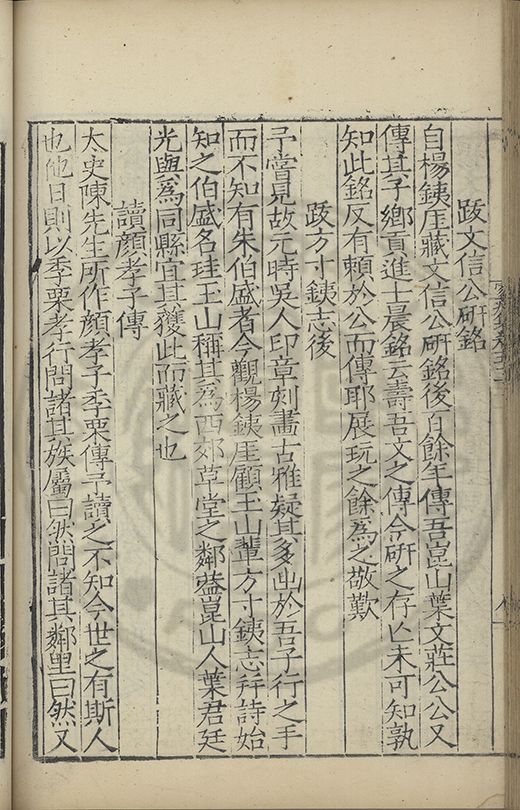 跋文信公硏銘
自楊鐵厓藏文信公硏銘後百餘年傳吾崑山葉文莊公公又
傳其子鄉貢進士晨銘云壽吾文之傳今硏之存亡未可知孰
知此銘反有賴於公而傳耶展玩之餘為之敬歎
跋方寸鐵志後
予嘗見故元時吳人印章刻畫古雅疑其多出於吾子行之手
而不知有朱伯盛者今觀楊鐵厓顧玉山輩方寸鐵志并詩始
知之伯盛名珪玉山稱其為西郊草堂之鄰葢崑山人葉君廷
光與為同縣宜其獲此而藏之也
讀顏孝子傳
太史陳先生所作顏孝子季栗傳予讀之不知今世之有斯人
也他日則以季栗孝行問諸其族屬曰然問諸其鄰里曰然又